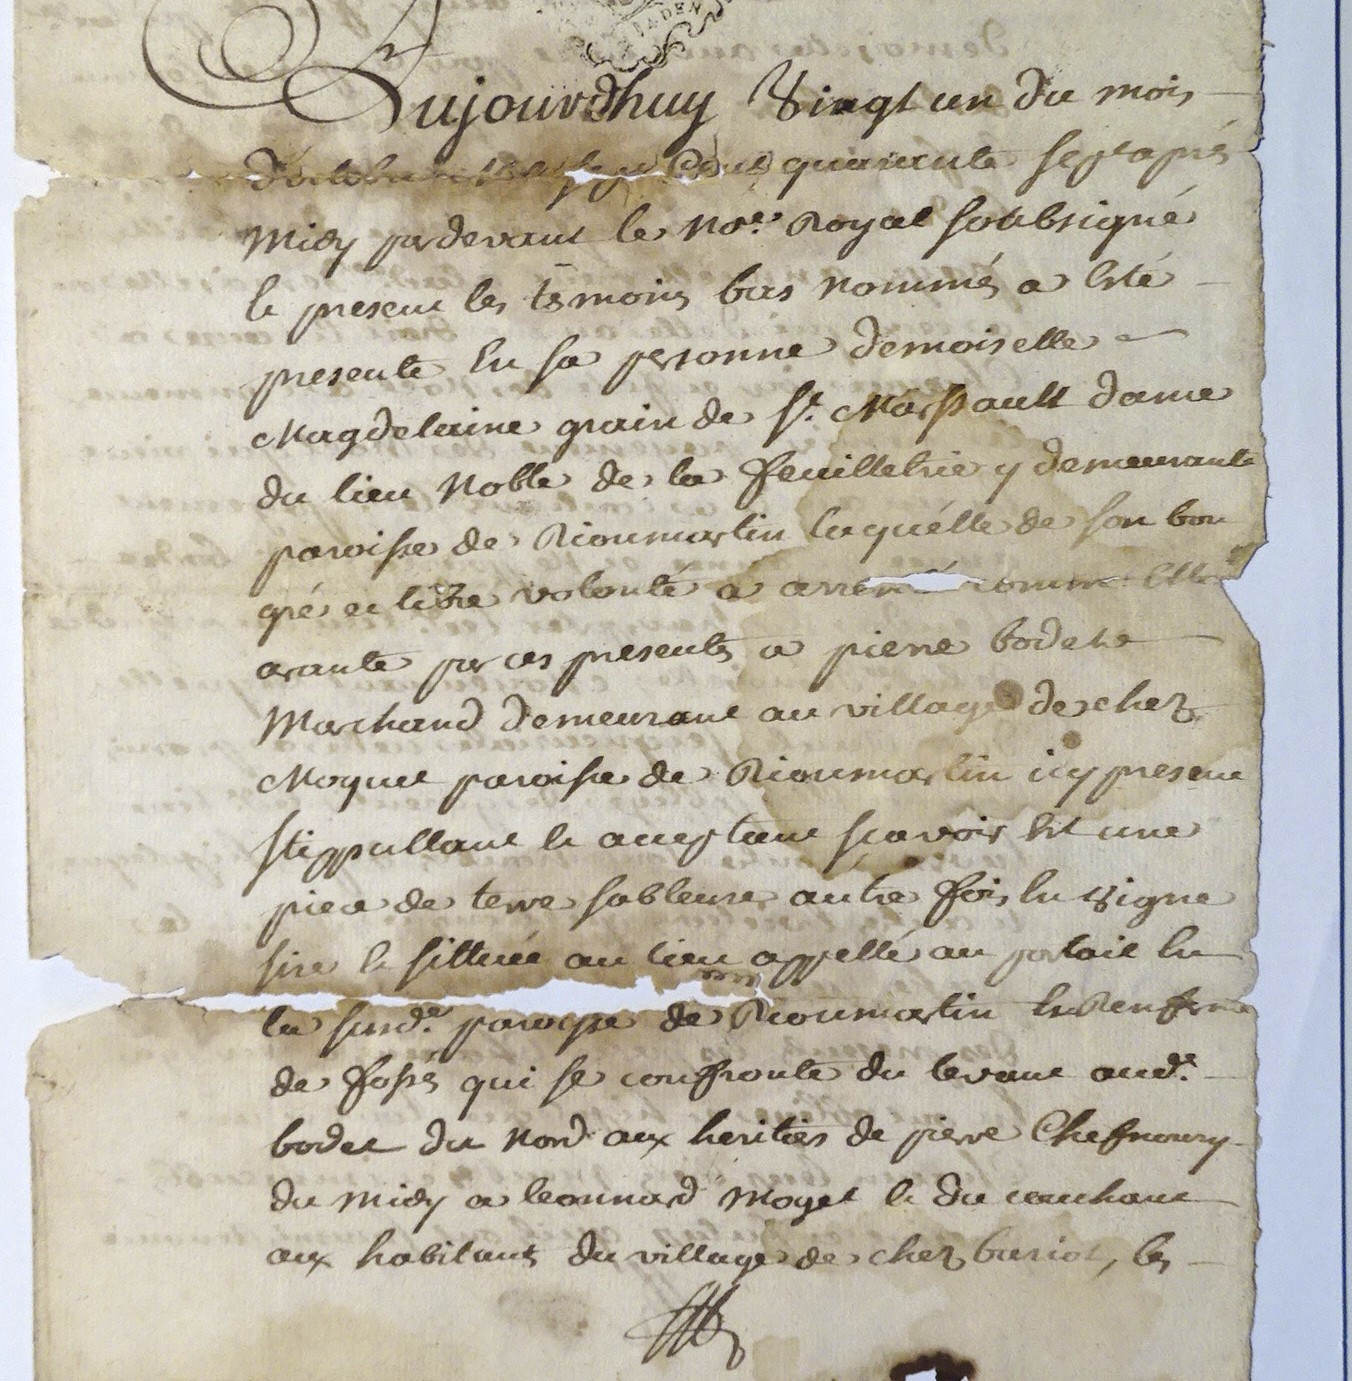 Aujourdhuy Vingt un du mois
quarante sept apres
Midy par devant le Nore. Royal soubsigné
et present les tesmoins bas nommés a esté
presente en sa personne demoiselle
Magdelaine grain de St. Marsault dame
du lieu Noble de la feuilletrie y demeurante
paroisse de Rioumartin laquélle de son bon
gré et libre volonté a comme elle
arante par ces presentes a pierre bodet
Marchand demeurant au village de chez
Moquet paroisse de Rioumartin icy present
stippullant et acceptant sçavoir est une
piece de terre sableuse autre fois en vigne
size et sittuée au lieu appellé au portail en
la susde. paroisse de Rioumartin en Renferme
de fossés qui se confronte du levant aud.
bodet du Nord aux heritiers de pierre
du Midy a leonnard Moquet et du couchant
aux habitants du village de chez buriot, les